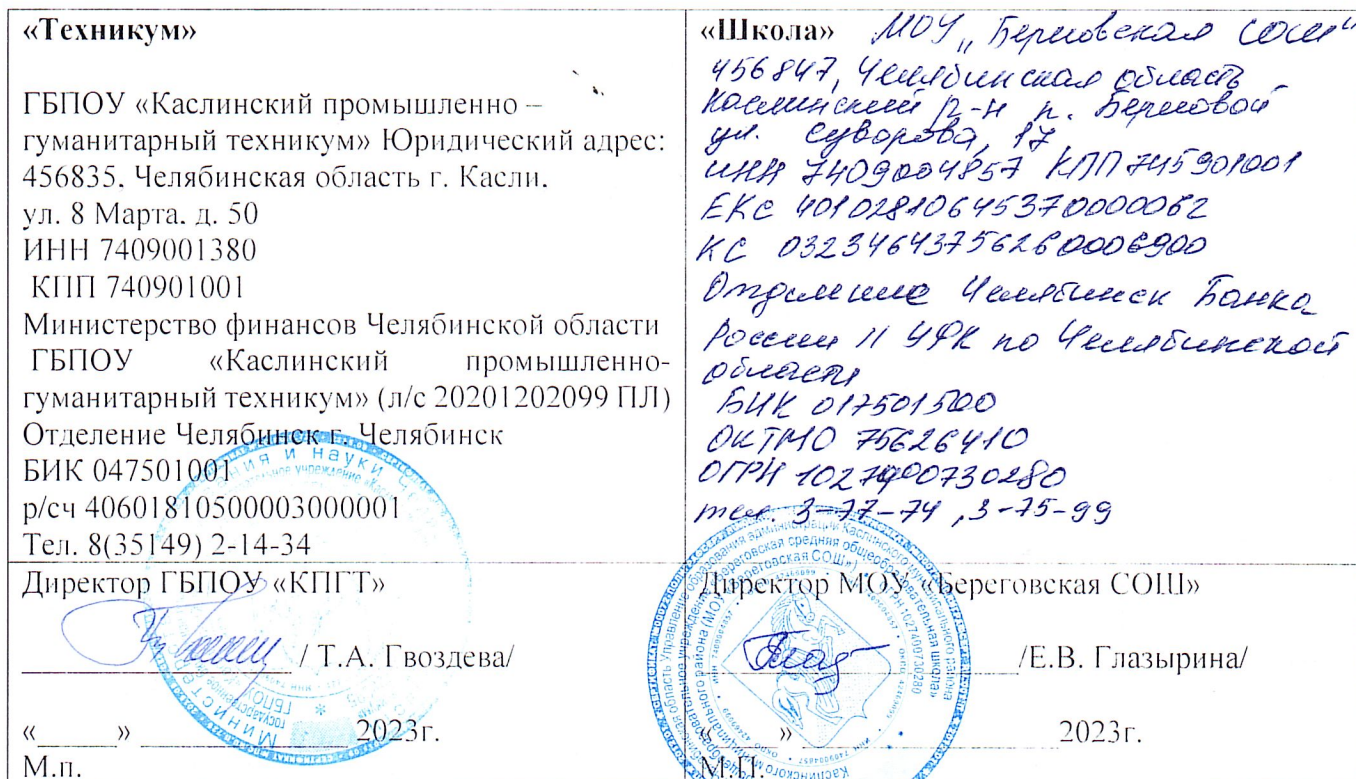 «Техникум»
ГБПОУ «Каслинский промышленно –
гуманитарный техникум» Юридический адрес:
456835, Челябинская область г. Касли,
ул. 8 Марта, д. 50
ИНН 7409001380
КПП 740901001
Министерство финансов Челябинской области
ГБПОУ «Каслинский промышленно-
гуманитарный техникум» (л/с 20201202099 ПЛ)
Отделение Челябинск г. Челябинск
БИК 047501001
р/сч 40601810500003000001
Тел. 8(35149) 2-14-34
«Школа» МОУ „Береговская СОШ"
456847, Челябинская область
Каслинский р-н п. Береговой
ул. Суворова, 17
ИНН 7409004857 КПП 745901001
ЕКС 40102810645370000062
КС 03234643756260006900
Отделение Челябинск Банка
России // УФК по Челябинской
области
БИК 017501500
ОКТМО 75626410
ОГРН
тел. 3-77-74, 3-75-99
Директор ГБПОУ «КПГТ»
/ Т.А. Гвоздева/
«_____» _______________2023г.
М.п.
Директор МОУ «Береговская СОШ»
/Е.В. Глазырина/
«_____» ____________________2023г.
М.П.